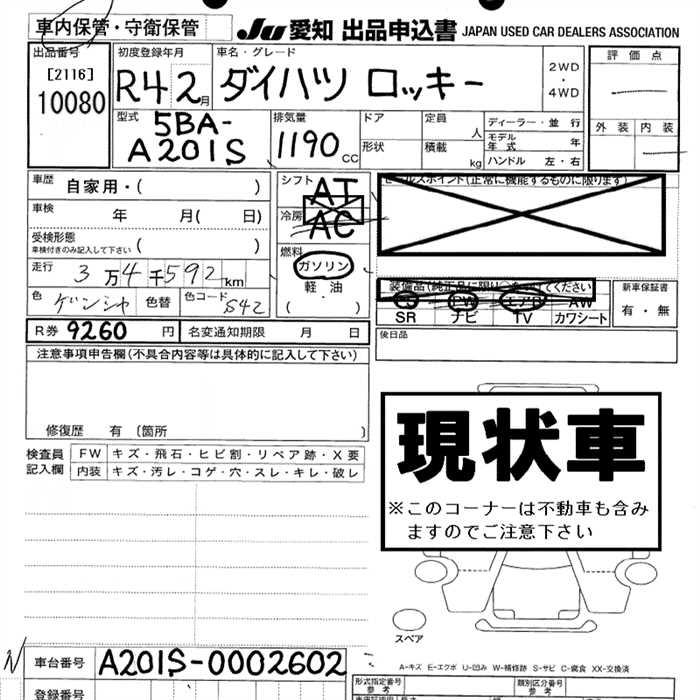 車内保管・守衛保管
JU 愛知 出品申込書 JAPAN USED CAR DEALERS ASSOCIATION
出品番号
[2116]
10080
初度登録年月
R4 2月
車名・グレード
ダイハツ ロッキー
2WD
・
4WD
評価点
外装 内装
型式
5BA-
A201S
排気量
1190 CC
ドア
形状
定員 人
積載 kg
ディーラー・並行
モデル年式 年
ハンドル 左・右
車歴 自家用・( )
車検 年 月( 日)
受検形態
車検付きのみ記入して下さい ( )
走行 3万4千592km
色 ゲンシャ 色替 色コード S42
R券 9260 円 名変通知期限 月 日
シフト AT
冷房 AC
燃料
ガソリン
・
軽・油
( )
セールスポイント(正常に機能するものに限ります)
装備品(純正品に限り○をつけてください
PW エアB AW
SR ナビ TV カワシート
新車保証書
有・無
後日品
注意事項申告欄(不具合内容等は具体的に記入して下さい)
修復歴 有 〔箇所 〕
検査員
記入欄
FW キズ・飛石・ヒビ割・リペア跡・X要
内装 キズ・汚レ・コゲ・穴・スレ・キレ・破レ
現状車
※このコーナーは不動車も含み
ますのでご注意下さい
スペア
A-キズ E-エクボ U-凹み W-補修跡 S-サビ C-腐食 XX-交換済
車台番号 A201S-0002602
登録番号
形式指定番号
参考
類別区分番号
参考